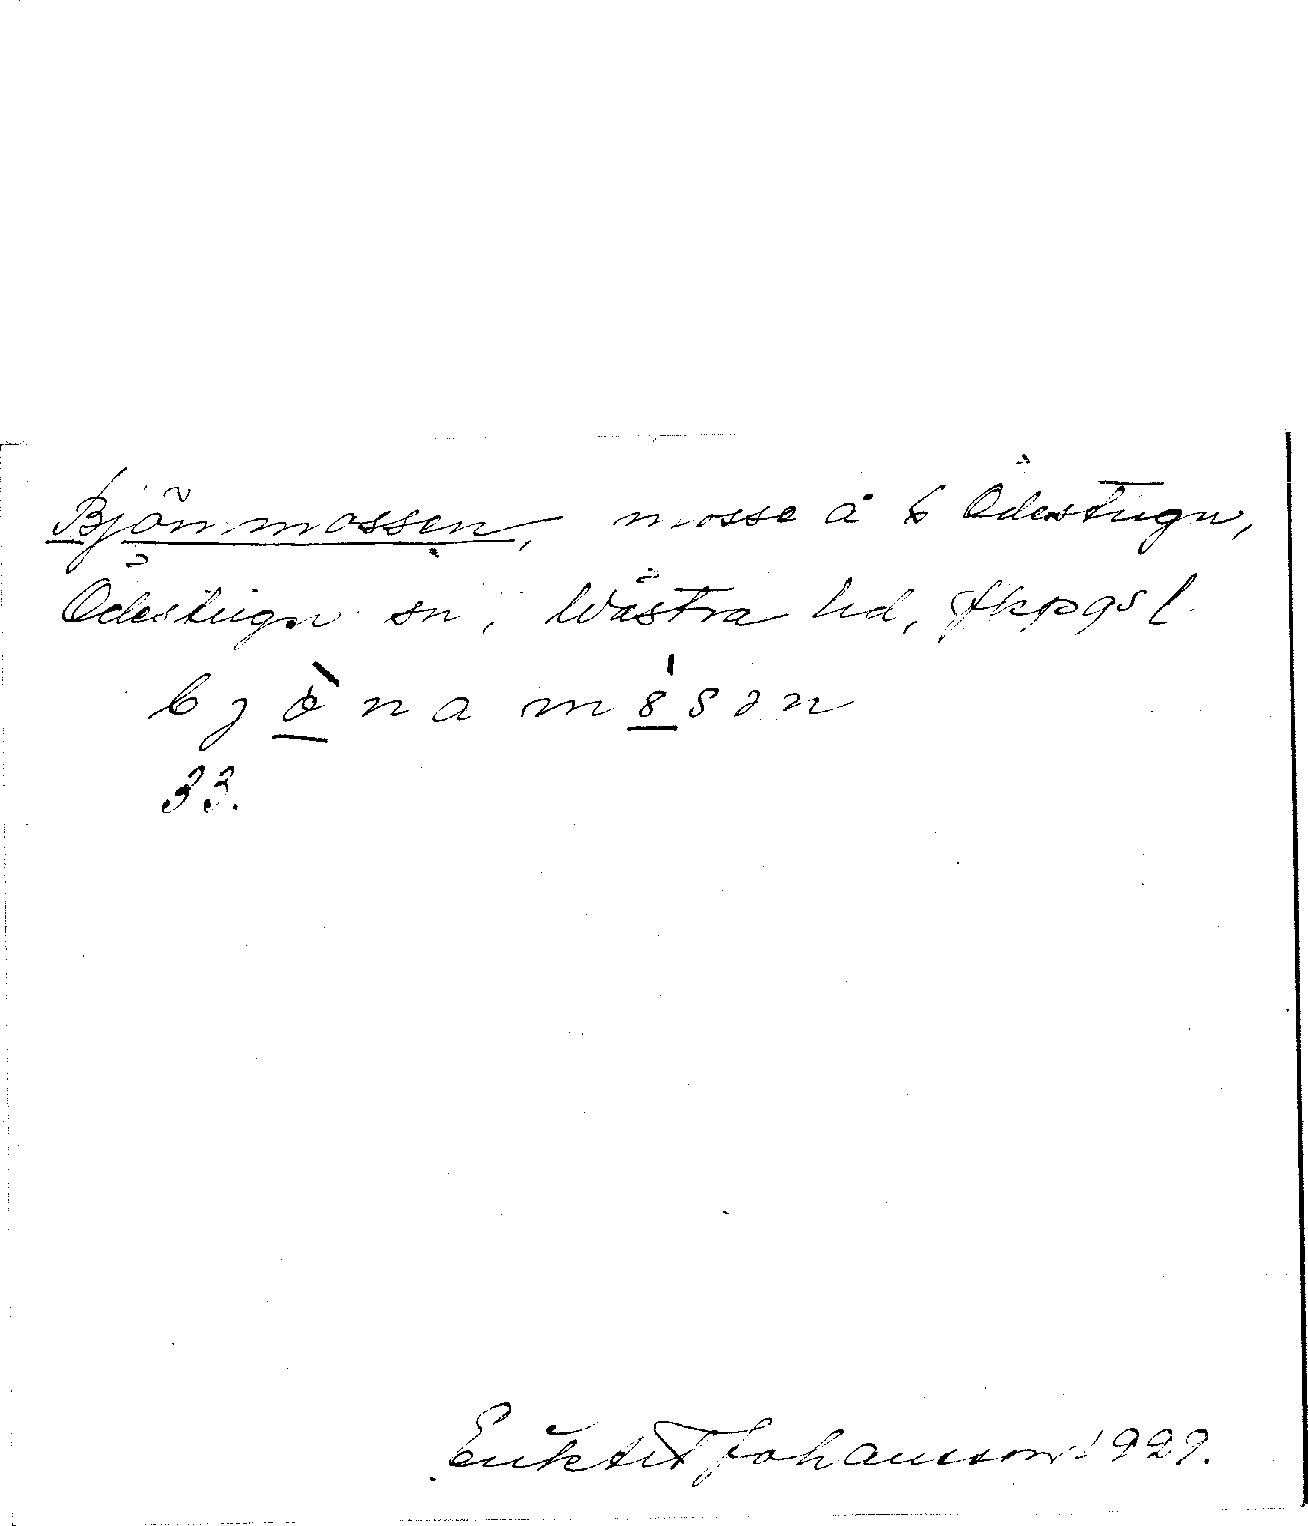 Björnmossen, mosse å 6 Ödestugu,
Ödestugu sn, Västra hd, Jkpgs l.
33.
Johansson 1929.